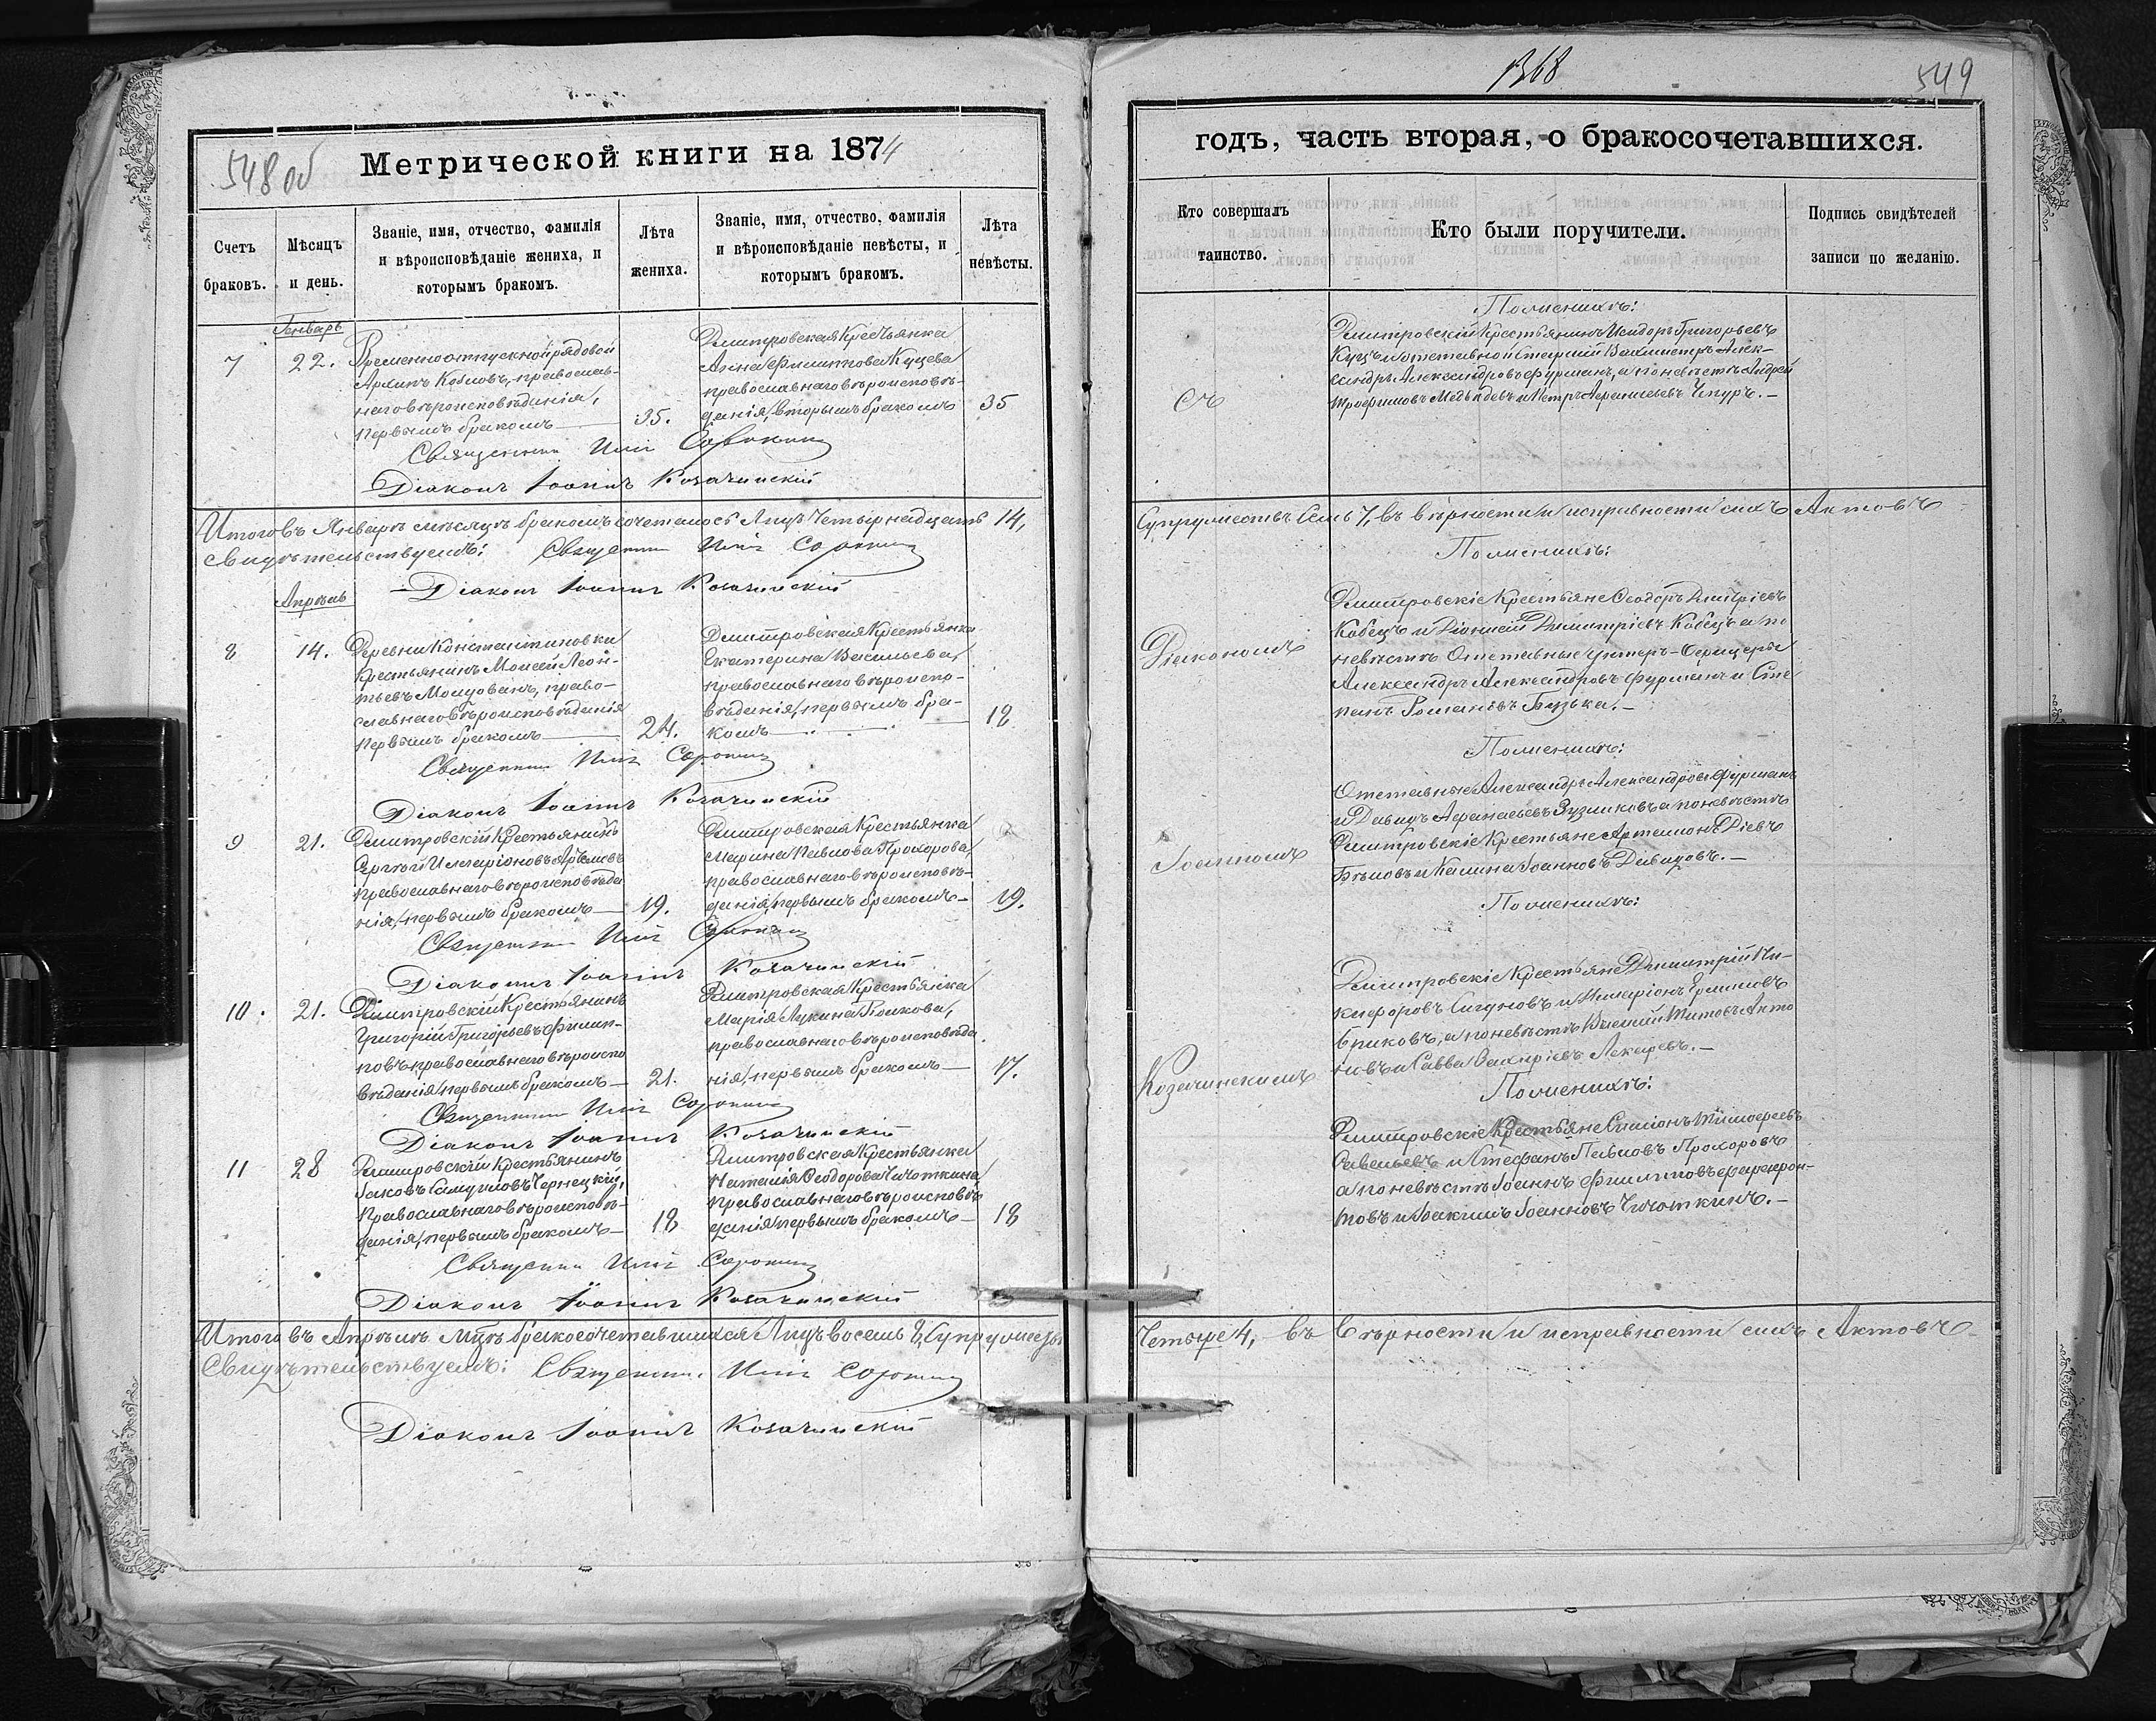 548 об
Метрической книги на 1874
Счетъ браковъ.
Мѣсяцъ и день.
Званіе, имя, отчество, фамилія
и вѣроисповѣданіе жениха, и
которымъ бракомъ.
Лѣта жениха.
Званіе, имя, отчество, фамилія
и вѣроисповѣданіе невѣсты, и
которымъ бракомъ.
Лѣта невѣсты.
Генварь
7
22.
Временноотпускной рядовой
Архипъ Козловъ, православ-
наго вѣроисповѣданія,
первымъ бракомъ
35.
Дмитровская Крестьянка
Анна Филиппова Куцева
православнаго вѣроисповѣ-
данія, вторымъ бракомъ
35
Священник Сорокин
Діаконъ Іоаннъ Козачинскій
Итого въ Январѣ мѣсяцѣ бракомъ сочеталось Лицъ Четырнадцать 14,
свидѣтельствуемъ: Священник Сорокин
Діаконъ Іоаннъ Козачинскій
Апрѣль
8
14.
Деревни Константиновки
Крестьянинъ Моисей Леон-
тьевъ Молдованъ, право-
славнаго вѣроисповѣданія
первымъ бракомъ
24.
Дмитровская Крестьянка
Екатерина Васильева,
православнаго вѣроиспо-
вѣданія, первымъ бра-
комъ
18
Священник Сорокин
Діаконъ Іоаннъ Козачинскій
9
21.
Дмитровскій Крестьянинъ
Сергѣй Илларіоновъ
православнаго вѣроисповѣда
нія, первымъ бракомъ
19.
Дмитровская Крестьянка
Марина Павлова Прохорова,
православнаго вѣроисповѣ-
данія, первымъ бракомъ
19.
Священник Сорокин
Діаконъ Іоаннъ Козачинскій
10.
21.
Дмитровскій Крестьянинъ
Григорій Григорьевъ Филип-
повъ, православнаго вѣроиспо
вѣданія, первымъ бракомъ
21.
Дмитровская Крестьянка
Марія Лукина
православнаго вѣроисповѣда
нія, первымъ бракомъ
17.
Священник Сорокин
Діаконъ Іоаннъ Козачинскій
11
28
Дмитровскій Крестьянинъ
Іаковъ Самуиловъ Чернецкій,
православнаго вѣроисповѣ-
данія, первымъ бракомъ
18
Дмитровская Крестьянка
Наталія Ѳеодорова Чечоткина
православнаго вѣроисповѣ
данія первымъ бракомъ
18
Священник Сорокин
Діаконъ Іоаннъ Козачинскій
Итого въ Апрѣлѣ мцѣ бракосочетавшихся Лицъ восемь 8, Супружествъ
Свидѣтельствуемъ: Священник Сорокин
Діаконъ Іоаннъ Козачинскій
1368
549
годъ, часть вторая, о бракосочетавшихся.
Кто совершалъ таинство.
Кто были поручители.
Подпись свидѣтелей записи по желанію.
Съ
По женихѣ:
Дмитровскій Крестьянинъ Исидоръ Григорьевъ
Куцъ и отставной старшій Вахмистръ Алек-
сандръ Александровъ Фурманъ, а по невѣстѣ Андрей
Трофимовъ Медведевъ и Петръ Аѳанасьевъ Чепуръ.
Супружествъ Семь 7, въ вѣрности и исправности сихъ Актовъ
По женихѣ:
Діакономъ
Дмитровскіе Крестьяне Ѳеодоръ Дмитріевъ
Кобецъ и Діонисій Димитріевъ Кобецъ а по
невѣстѣ Отставные Унтеръ-Офицеры
Александръ Александровъ Фурманъ и Сте
панъ Романовъ Бузька.
По женихѣ:
Іоанномъ
Отставные Александръ Александровъ Фурманъ
и Давидъ Аѳанасьевъ а по невѣстѣ
Дмитровскіе Крестьяне Артемонъ Діевъ
Бѣловъ и Калина Іоанновъ Давидовъ.
По женихѣ:
Козачинскимъ
Дмитровскіе Крестьяне Димитрій Ни-
кифоровъ Сигуновъ и Илларіонъ
а по невѣстѣ Василій Титовъ Анто
новъ и Савва Захаріевъ Лекаревъ.
По женихѣ:
Дмитровскіе Крестьяне Симіонъ Тимоѳеевъ
Савельевъ и Стефанъ Павловъ Прохоровъ
а по невѣстѣ Іоаннъ Филиповъ Ферафон-
товъ и Іоакимъ Іоанновъ Чечоткинъ.
Четыре 4, въ вѣрности и исправности сихъ Актовъ